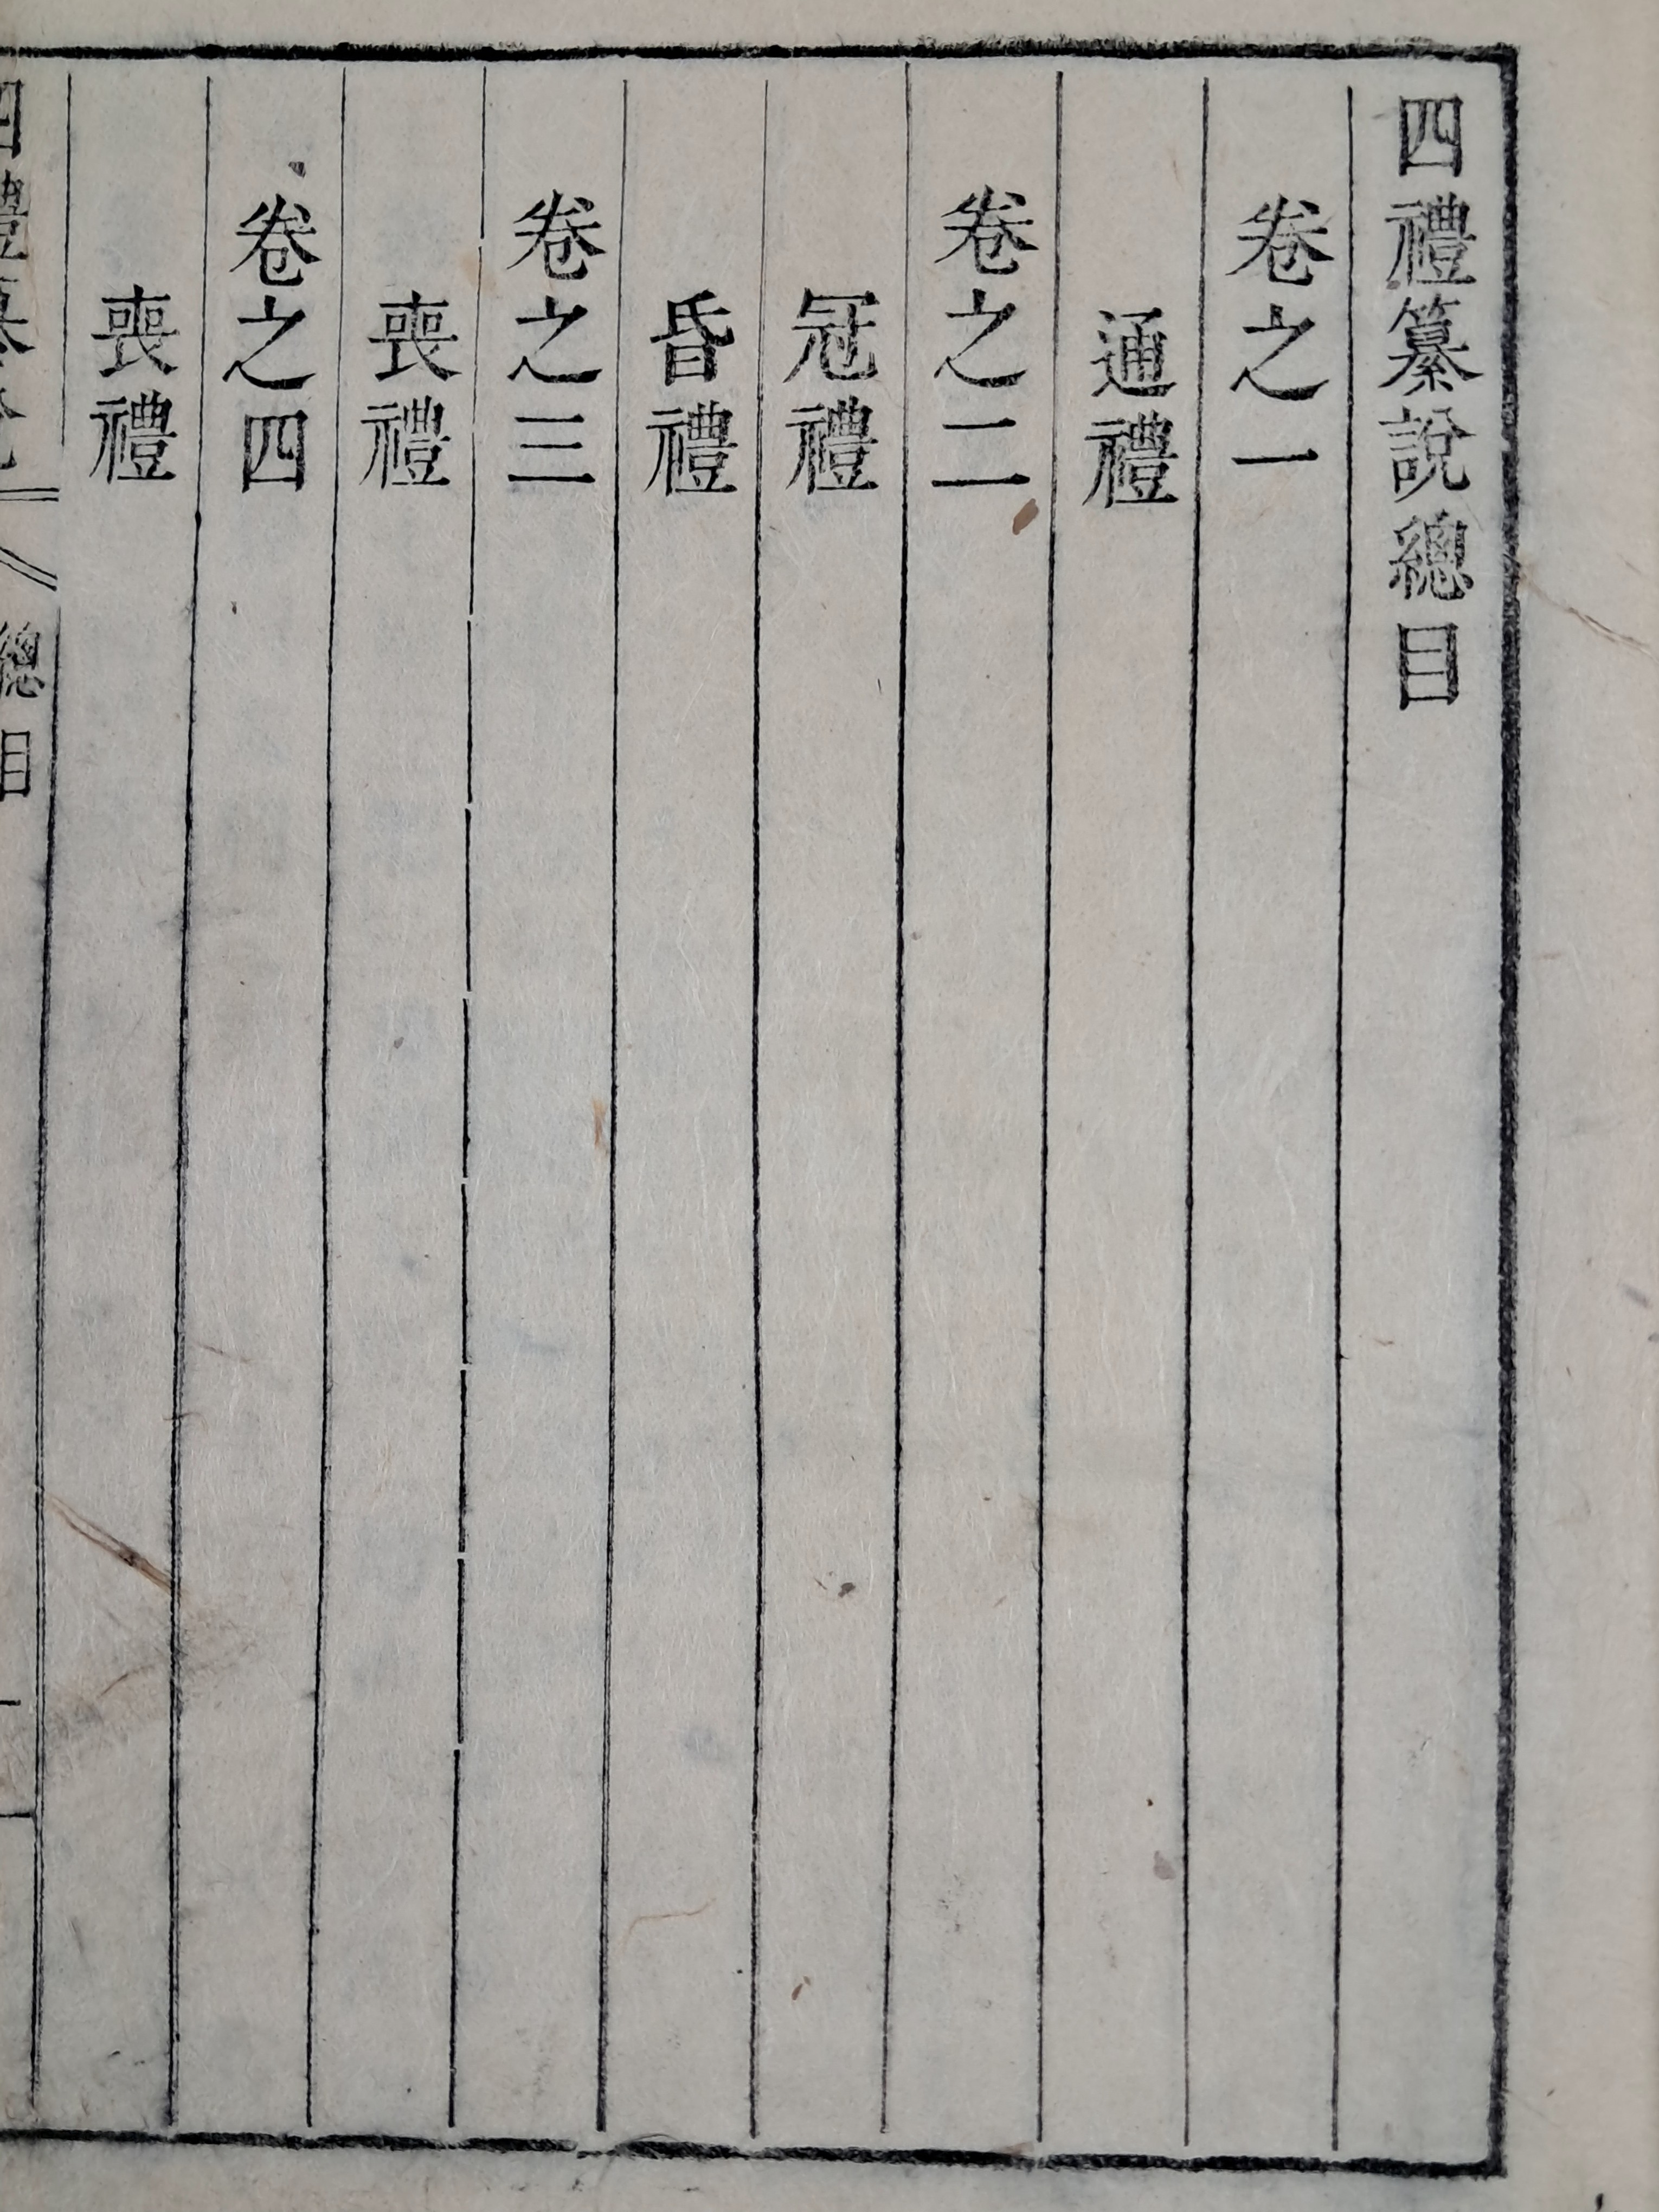 四禮纂說總目
卷之一
通禮
卷之二
冠禮
昏禮
卷之三
喪禮
卷之四
喪禮
四禮纂說
總目
一